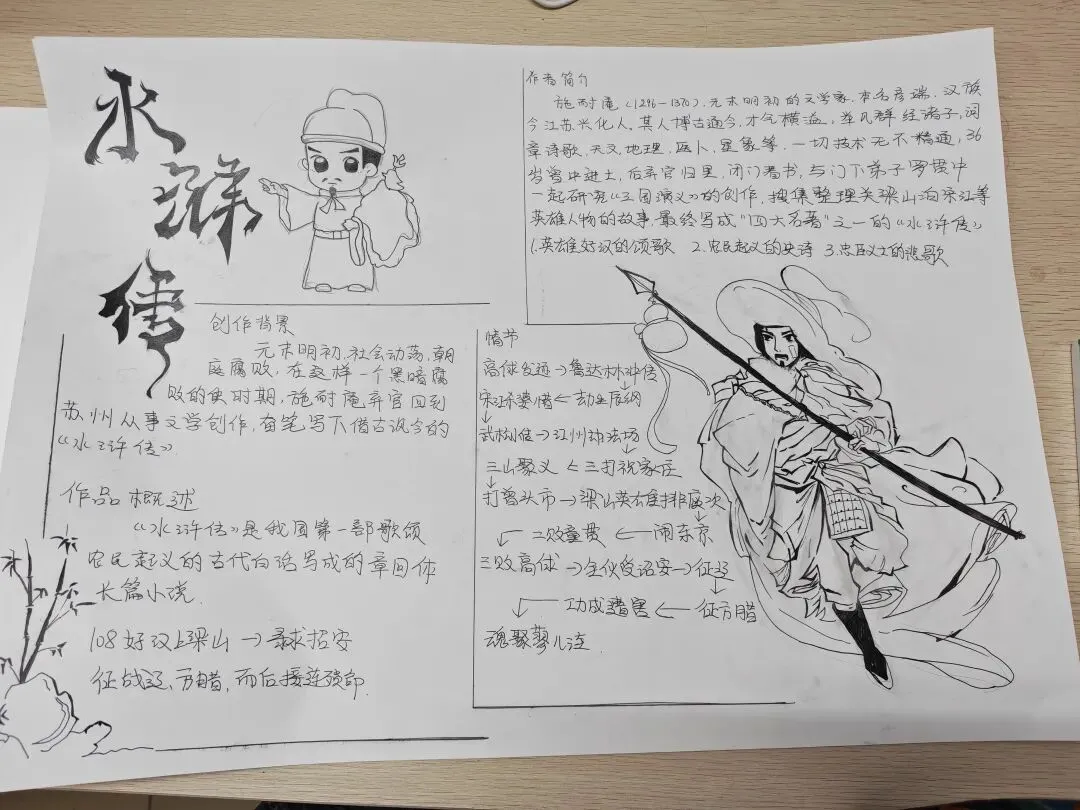 水
浒
传
作者简介
施耐庵(1296-1370).元末明初的文学家.本名彦瑞.汉族
今江苏兴化人.其人博古通今,才气横溢,举凡群经诸子,词
章诗歌,天文,地理,医卜,星象等,一切技术无不精通,36
岁曾中进士,后弃官归里,闭门看书,与门下弟子罗贯中
一起研究《三国演义》的创作,搜集整理关梁山泊宋江等
英雄人物的故事,最终写成"四大名著"之一的《水浒传》
1.英雄好汉的颂歌 2.农民起义的史诗 3.忠臣义士的悲歌
创作背景
元末明初,社会动荡,朝
庭腐败,在这样一个黑暗腐
败的史时期,施耐庵弃官回到
苏州从事文学创作,奋笔写下借古讽今的
《水浒传》.
作品概述
《水浒传》是我国第一部歌颂
农民起义的古代白话写成的章回体
长篇小说.
108好汉上梁山→寻求招安
征战辽、方腊,而后接连殒命.
情节
高俅发迹→鲁达林冲传
宋江杀婆惜←劫生辰纲
武松传→江州劫法场
三山聚义←三打祝家庄
打曾头市→梁山英雄排座次
二败童贯←闹东京
三败高俅→全伙受诏安→征辽
功成遭害←征方腊
魂聚蓼儿洼.